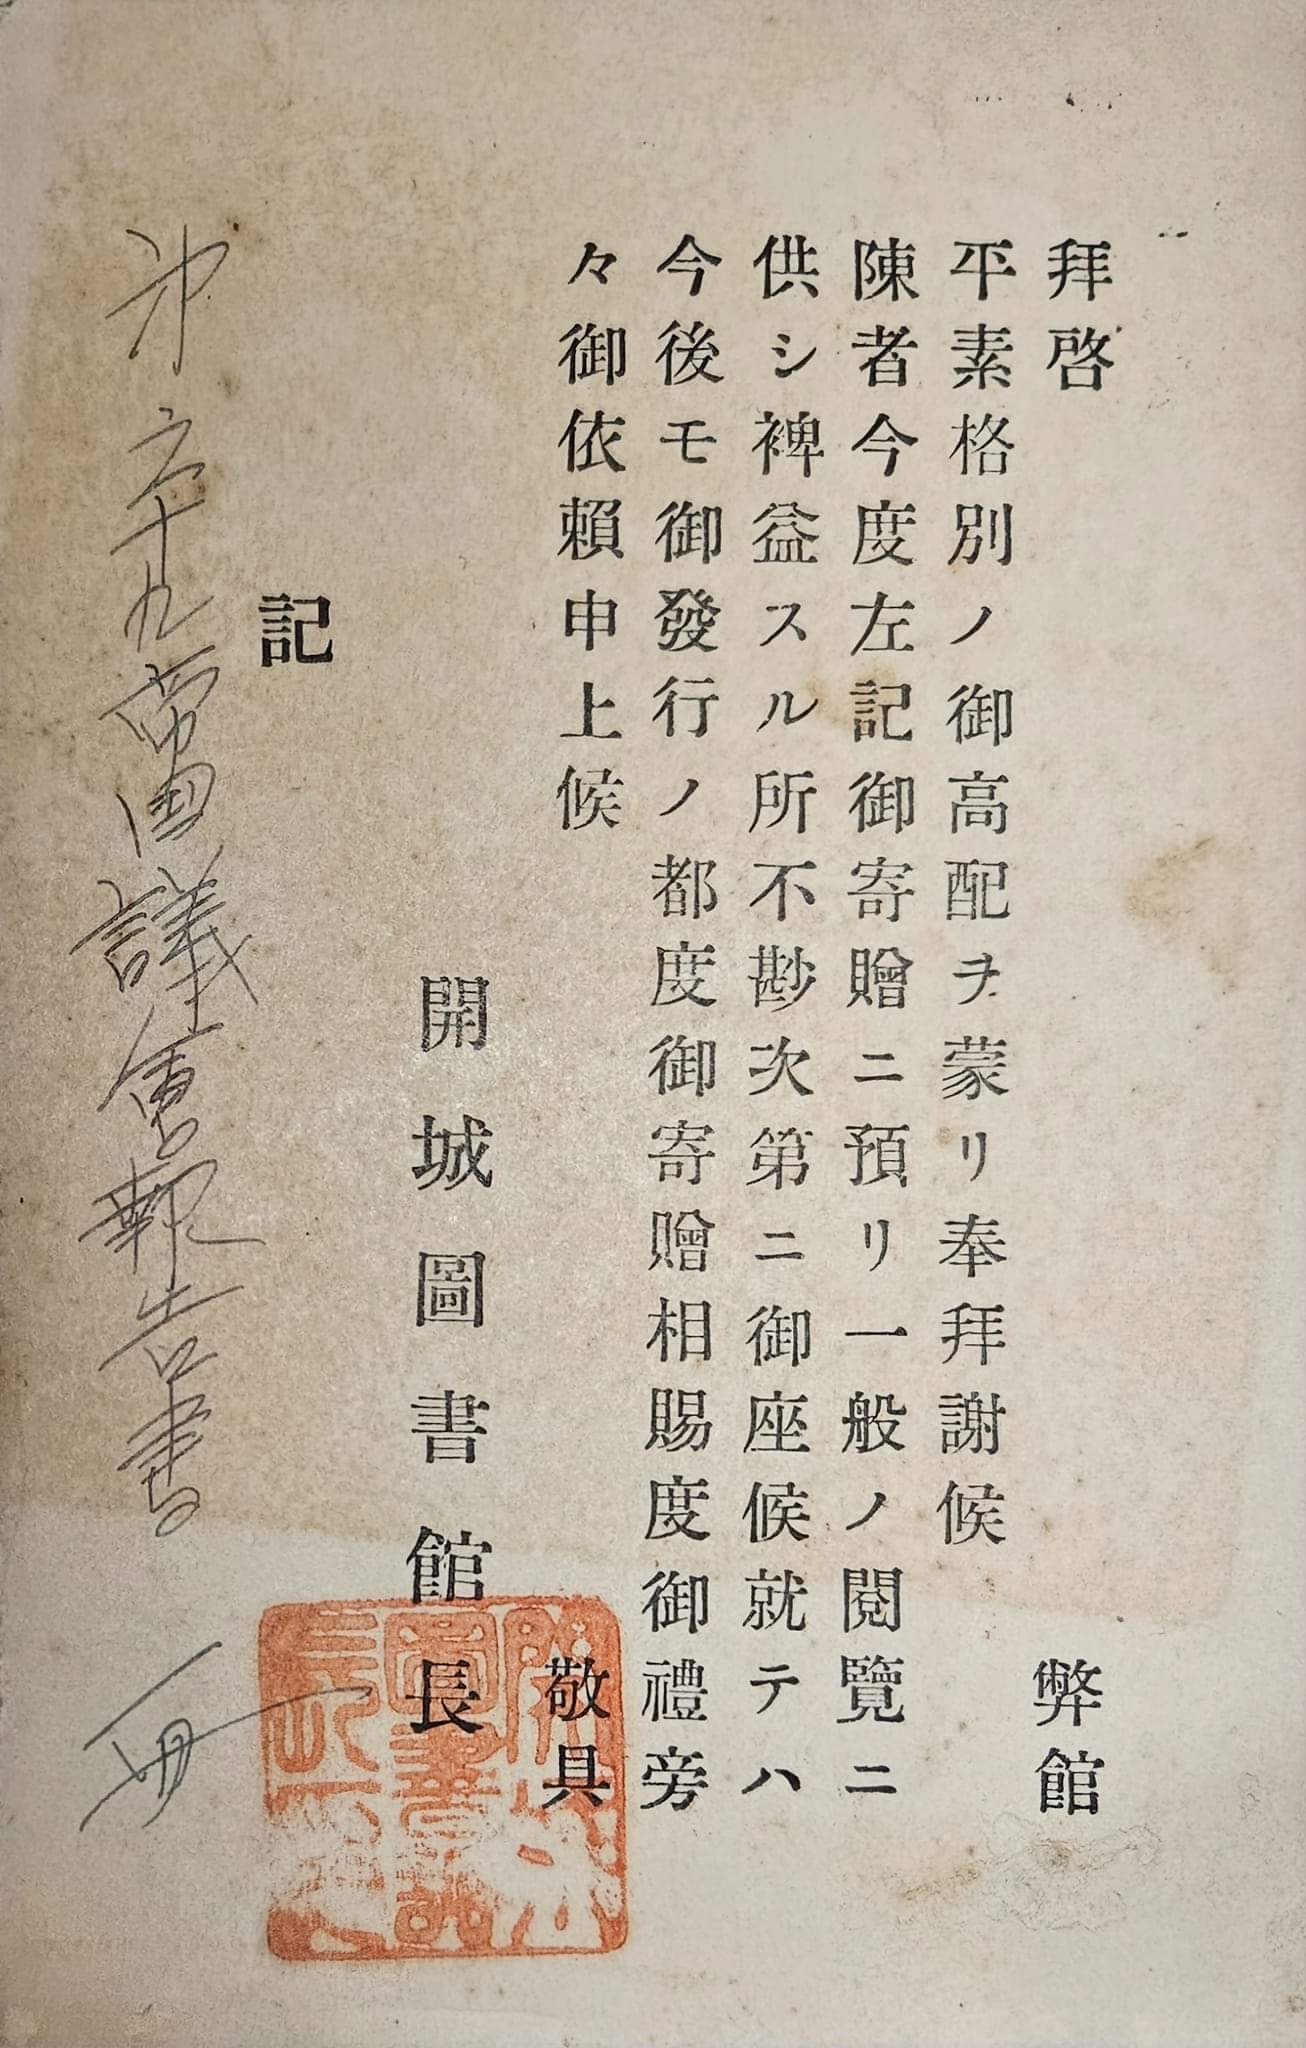 拜啓　弊館
平素格別ノ御高配ヲ蒙リ奉拜謝候
陳者今度左記御寄贈ニ預リ一般ノ閱覽ニ
供シ裨益スル所不尠次第ニ御座候就テハ
今後モ御發行ノ都度御寄贈相賜度御禮旁
々御依賴申上候　敬具
開城圖書館長
記
第六十九帝國議會報告書　一册